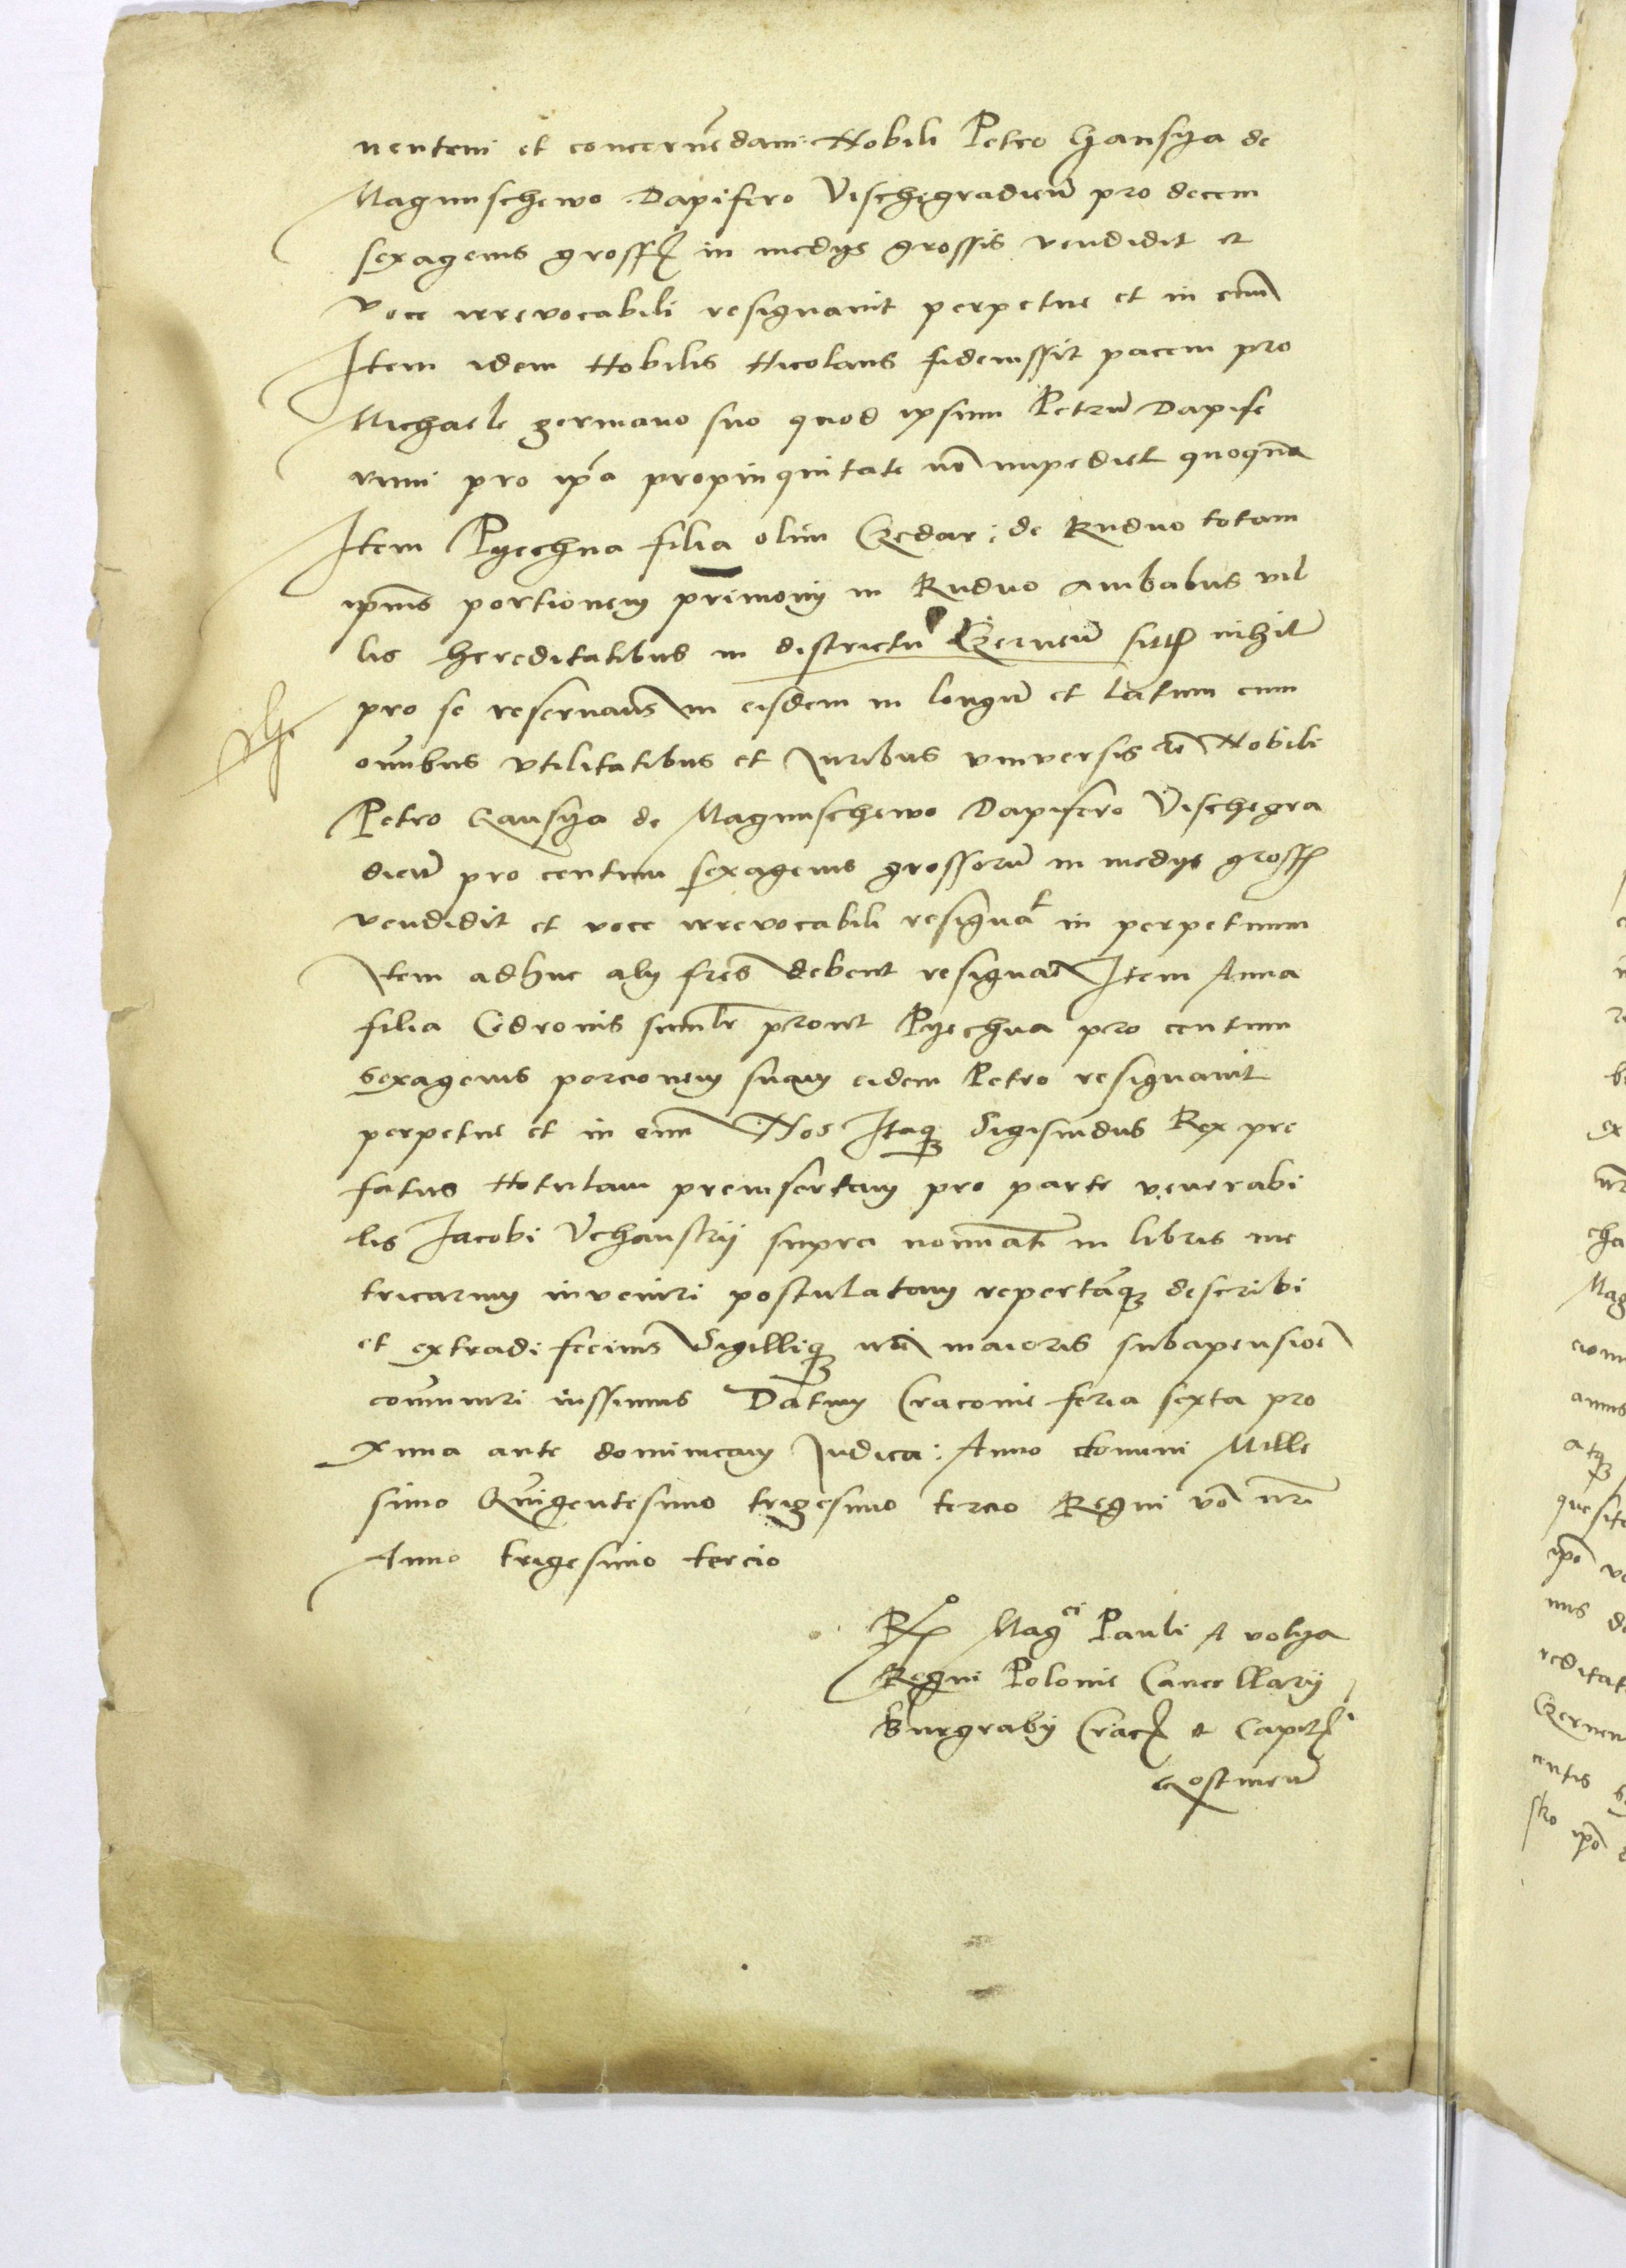 nentem et concernẽdam Nobili Petro Gansÿa de
Magnuschewo Dapifero Vischegradieñ pro decem
sexagenis gross in medÿs grossis vendidit et
voce irrevocabili resignauit perpetue et in euũ
Item idem Nobilis Nicolaus fideiussit pacem pro
Michaele germano suo quod ipsum Petrũ Dapife
rum pro ip̃a propinquitate nõ impediet quoquõ
Item Pyechna filia olim Czedar: de Rudno totam
ip̃ius portionem p̃rimonÿ in Rudno Ambabus vil
lis hereditatibus in districtu Czerneñ sitt nihil
pro se reseruañs in eisdem in longũ et latum cum
om̃ibus vtilitatibus et Juribus vniversis Nobili
Petro Gansÿa de Magnuschewo Dapifero Vischegra
dieñ pro centum sexagenis grossorũ in medÿs gross
vendidit et voce irrevocabili resignat in perpetuum
Item adhuc alÿ fr̃es debent resignar̃ Item Anna
filia Cedronis simlr prout Pyechna pro centum
sexagenis porcionem suam eidem Petro resignauit
perpetue et in euũ Nos Itaq Sigismũdus Rex pre
fatus Notulam preinsertam pro parte venerabi
lis Jacobi Vchanskij supra nominati in libris me
tricarum inveniri postulatam repertãq describi
et extradi fecimus Sigilliq nr̃i maioris subapensiõe
com̃uniri iussimus Datum Cracovie feria sexta pro
xima ante dominicam Judica: Anno domini Mille
simo Quĩgentesimo trigesimo tercio Regni võ nr̃i
Anno trigesimo tercio
Mag ci Pauli A volÿa
Regni Polonie Cancellarÿ
Burgrabÿ Crac et Capit
Gostineñ